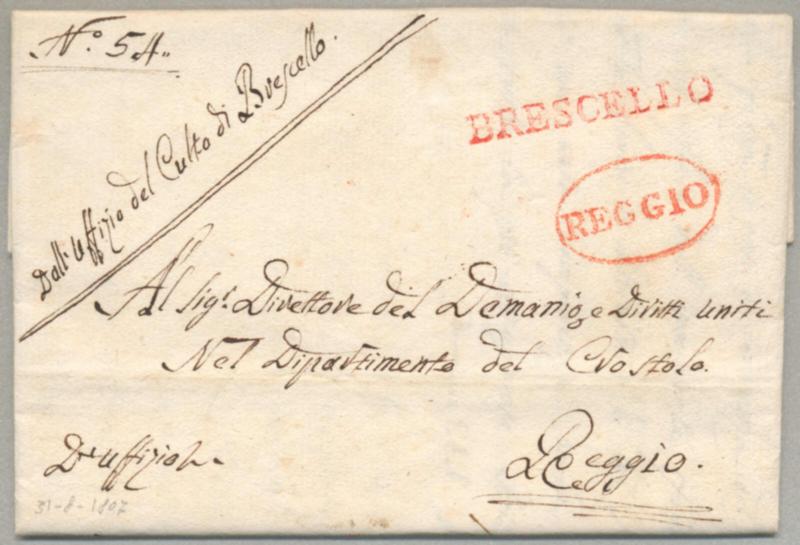 N.º 54.
Dall' Uffizio del Culto di Brescello.
BRESCELLO
REGGIO
Al Sig.r Direttore del Demanio, e Diritti uniti
Nel Dipartimento del Crostolo.
D'Uffizio
Reggio.
31-8-1807